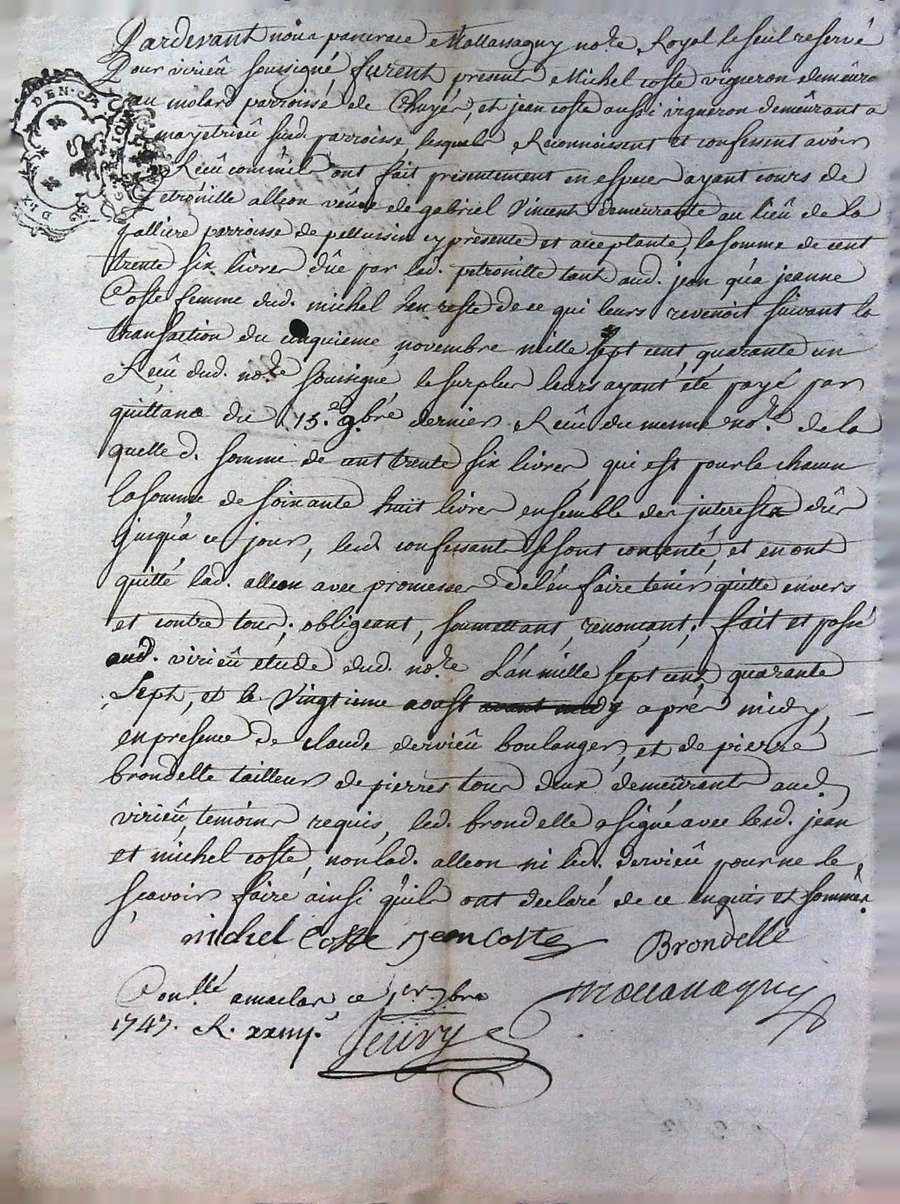 Pardevant nous pancrace Mollassagny no.re Royal le seul reservé
Pour virieû soussigné furent presents Michel coste vigneron demeurant
au molard parroisse de Chuyer, et jean coste aussi vigneron demeurant a
mayetrieû susd. parroisse, lesquels Reconnoissent et confessent avoir
Reçû comme ils ont fait presentement en especes ayant cours de
petronille alleon veuve de gabriel Vincent demeurante au lieu de la
valliere parroisse de pellussin cy presente et acceptante, la somme de cent
trente six livres dûe par lad. petronille tant aud. jean qu'a jeanne
Coste femme dud. michel en reste de ce qui leurs revenoit suivant la
transaction du cinquieme novembre mille sept cent quarante un
Reçû dud. no.re soussigné le surplus leurs ayant été payé par
quittance du 15.e 9bre dernier Reçû du mesme no.re de la
quelle d. somme de cent trente six livres qui est pour le chacun
la somme de soixante huit livres ensemble des interests dûs
jusqu'a ce jour, lesd. confessants se sont contentés, et en ont
quitté lad. alleon avec promesses de l'en faire tenir quitte envers
et contre tous, obligeant, soumettant, renonçant, fait et passé
aud. virieû etude dud. no.re L'an mille sept cent quarante
Sept, et le Vingtieme aoust avant midy aprés midy,
en presence de claude dervieû boulanger, et de pierre
brondelle tailleur de pierres tous deux demeurants aud.
virieû, temoins requis, led. brondelle a signé avec lesd. jean
et michel coste, non lad. alleon ni led. dervieû pour ne le
sçavoir faire ainsi qu'ils ont declaré de ce enquis et sommés
michel Coste jean Coste Brondelle
Con.llé a maclas ce 1er 7bre Mollassagny
1747. R. xxiiij s.